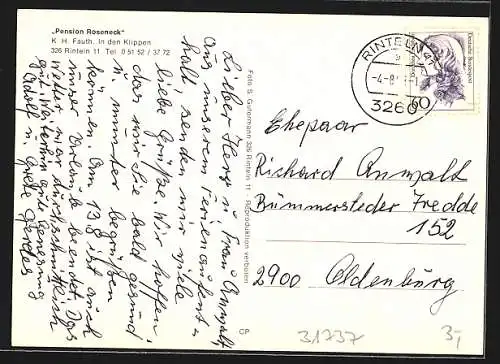 „Pension Roseneck"
K. H. Fauth, In den Klippen
326 Rinteln 11 Tel. 0 51 52 / 37 72
Lieber Herr u. Frau Anwalt,
Aus unserem Ferienaufent-
halt senden wir viele
liebe Grüße. Wir hoffen,
das wir Sie bald gesund
u. munter begrüßen
können. Am 13.8 ist auch
unser Urlaub beendet. Das
Wetter war durchschnittlich
gut. Weiterhin gute Genesung
Adolf u. Grete Gerdes
Foto S. Gutermann 326 Rinteln 11 - Reproduktion verboten
CP
RINTELN 1
-4.-8
3260
60
Deutsche Bundespost
Ehepaar
Richard Anwalt
Bümmersteder Tredde
152
2900 Oldenburg
31737
3,-